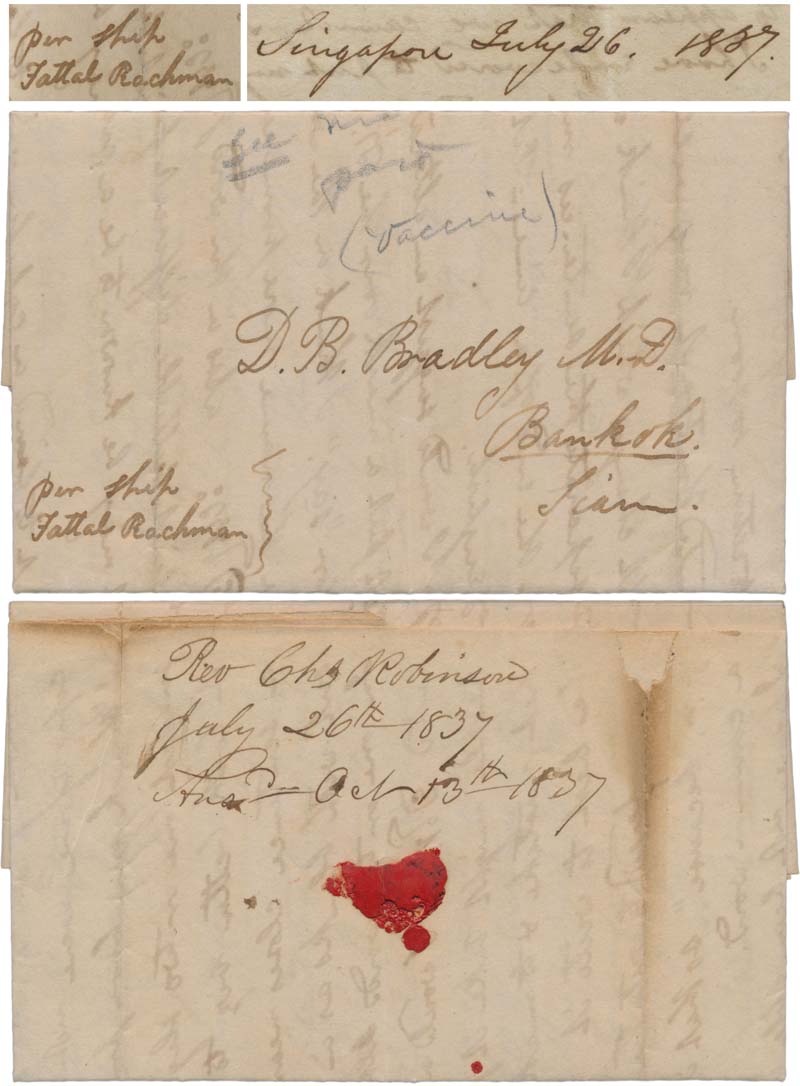 per ship
Fattal Rachman
Singapore July 26. 1837.
See
part
(vaccine)
D. B. Bradley M.D.
Bankok.
Siam.
per ship
Fattal Rachman
Rev Chs Robinson
July 26th 1837
Ansd Oct 13th 1837